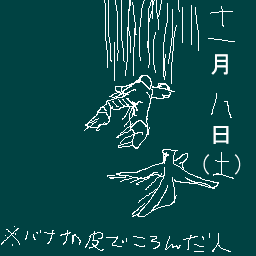 十一月八日(土)
※バナナの皮でころんだ人